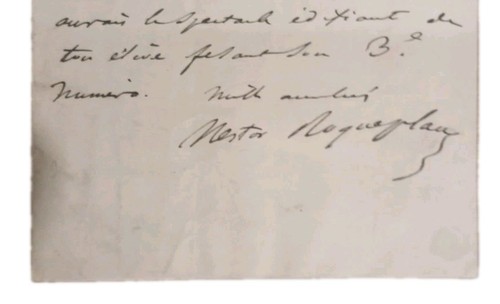 aurais le spectacle édifiant de
ton élève fesant son 3.e
Numéro. mille amitiés
Nestor Roqueplan